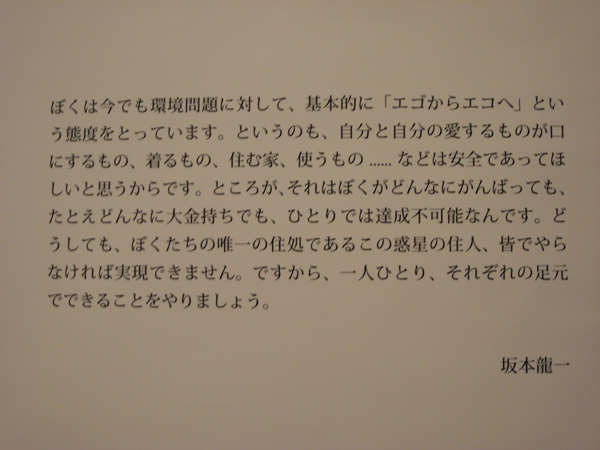 ぼくは今でも環境問題に対して、基本的に「エゴからエコへ」とい
う態度をとっています。というのも、自分と自分の愛するものが口
にするもの、着るもの、住む家、使うもの ...... などは安全であってほ
しいと思うからです。ところが、それはぼくがどんなにがんばっても、
たとえどんなに大金持ちでも、ひとりでは達成不可能なんです。ど
うしても、ぼくたちの唯一の住処であるこの惑星の住人、皆でやら
なければ実現できません。ですから、一人ひとり、それぞれの足元
でできることをやりましょう。
坂本龍一